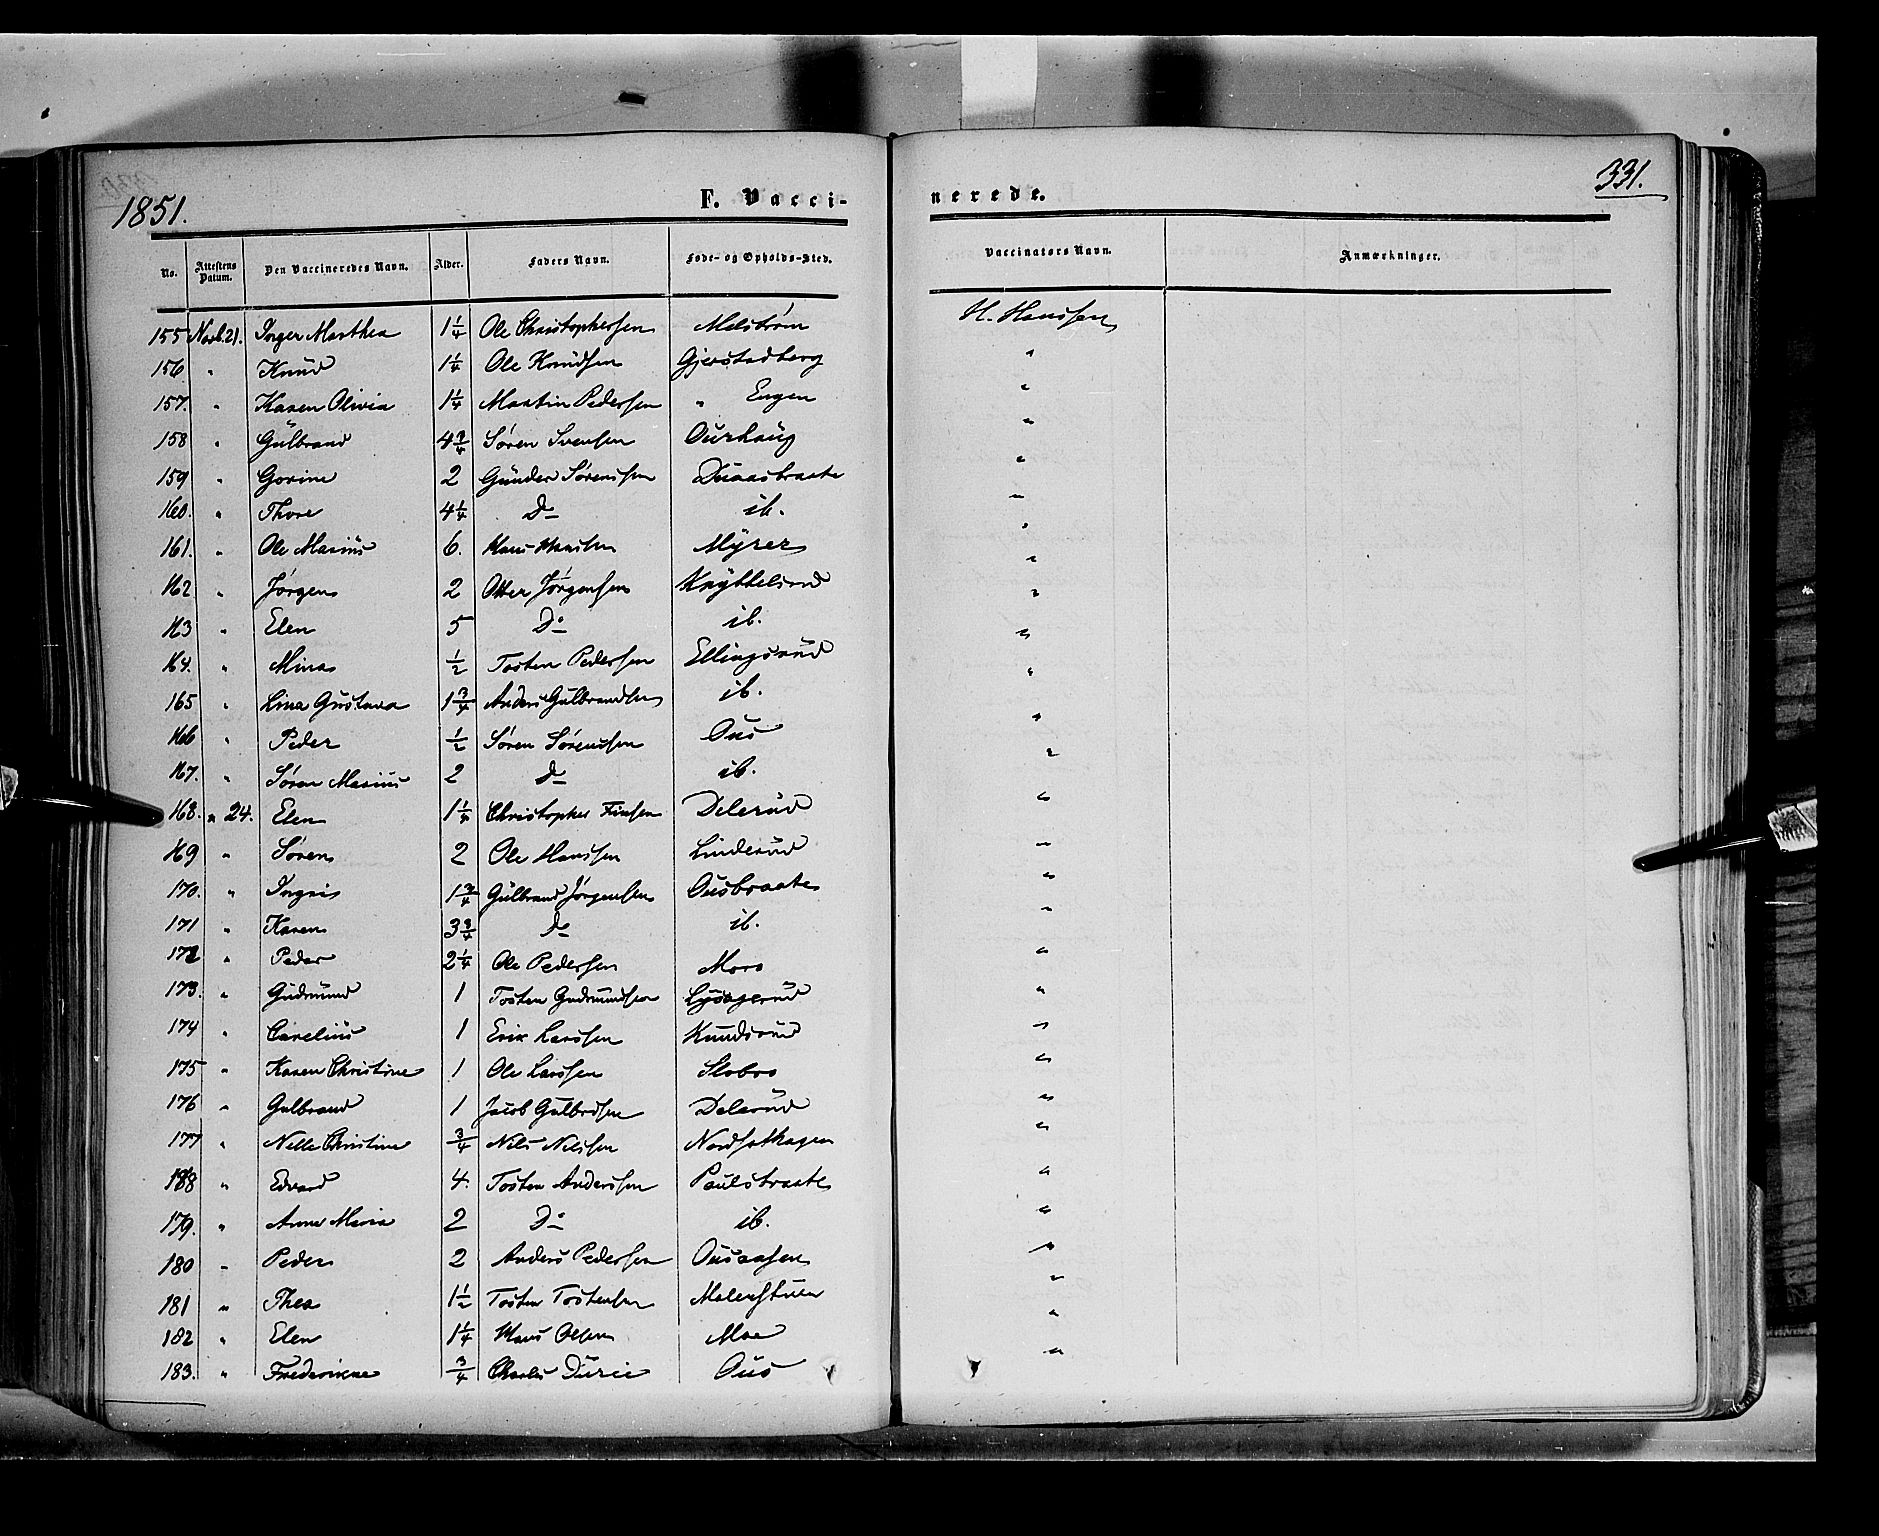 1851.
F. Vacci-
nerede.
331.
No. Attestens Datum. Den Vaccineredes Navn. Alder. Faders Navn. Føde- og Opholds-Sted. Vaccinators Navn. Anmærkninger.
155 Novb. 21. Inger Marthea 1 1/4 Ole Christophersen Melström H. Hanssen
156 " Knud 1 1/4 Ole Knudsen Gjerstadberg "
157. " Karen Olivia 1 1/4 Martin Pedersen " Engen "
158 " Gulbrand 4 3/4 Søren Svensen Ourhaug "
159 " Gorine 2 Gunder Sørenssen "
160. " Thore 4 1/4 Do ib. "
161. " Ole Marius 6. Hans Hansen Myrer "
162 " Jørgen 2 Otter Jørgensen Knyttelsrud "
163 " Elen 5 Do ib. "
164. " Mina 1/2 Tosten Pedersen Ellingsrud "
165 " Lina Gustava 1 3/4 Anders Gulbrandsen ib. "
166 " Peder 1/2 Søren Sørenssen Ous "
167. " Søren Marius 2 Do ib. "
168. " 24. Elen 1 1/4 Christopher Finsen Delerud "
169 " Søren 2 Ole Hanssen Linderud "
170. " Ingri 1 3/4 Gulbrand Jørgensen Ousbraate "
171 " Karen 3 3/4 Do ib. "
172 " Peder 2 1/4 Ole Pedersen Moro "
173. " Gudmund 1 Tosten Gudmundsen "
174 " Carelius 1 Erik Larssen Knudsrud "
175 " Karen Christine 1 Ole Larssen Slobro "
176 " Gulbrand 1 Jacob Gulbrdsen Delerud "
177 " Nelle Christine 3/4 Nils Nilssen Nordsethagen "
178 " Edvard 4. Tosten Anderssen Paulsbraate "
179. " Anne Maria 2 Do ib. "
180 " Peder 2 Anders Pedersen Ousaasen "
181 " Thea 1 1/2 Tosten Tostensen Malerstuen "
182 " Elen 1 1/4 Hans Olsen Moe "
183. " 3/4 Charles Ous "